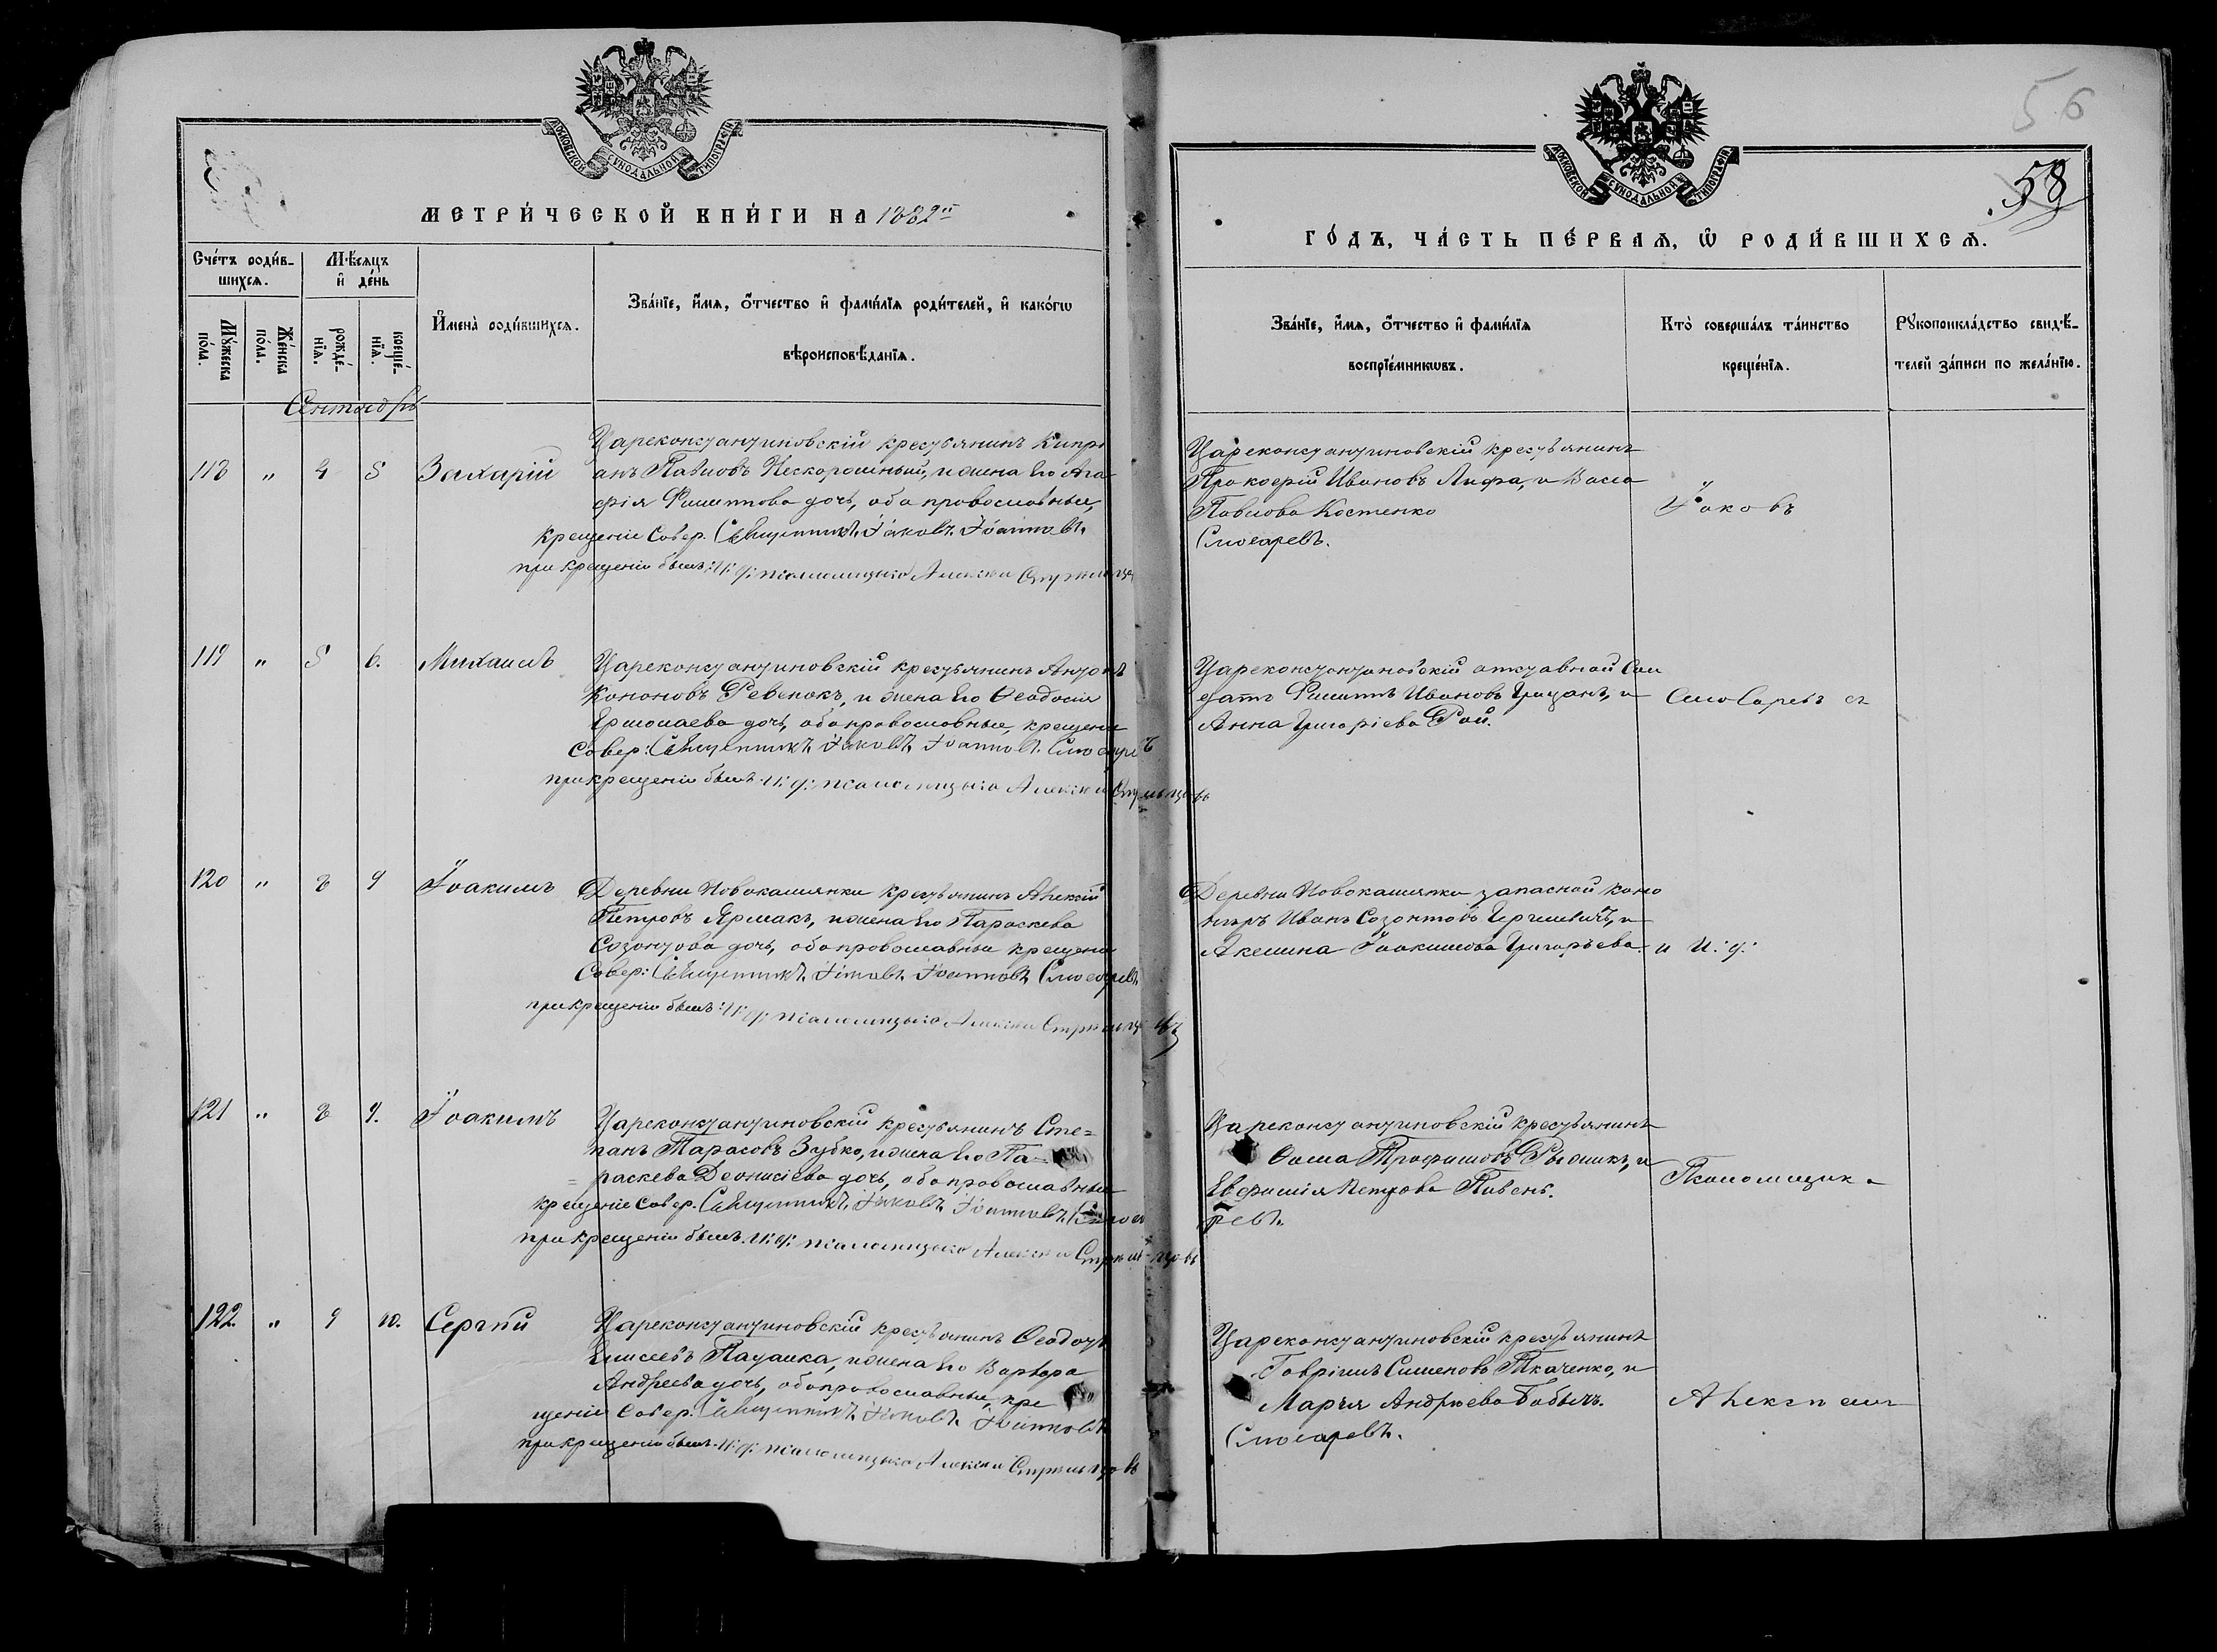 МОСКОВСКОЙ СУНОДАЛЬНОЙ ТИПОГРАФІИ
МЕТРИ́ЧЕСКОЙ КНИ́ГИ НА 1882й
Сче́тъ роди́в-
шихсѧ.
Мѣ́сѧцъ
и҆ де́нь
Мꙋ́жеска
по́ла.
Же́нска
по́ла.
рожде́-
нїѧ.
креще́-
нїѧ.
И҆мена̀ роди́вшихсѧ.
Зва́нїе, и҆́мѧ, ѻ҆́тчество и҆ фами́лїѧ роди́телей, и҆ како́гѡ
вѣроисповѣ́данїѧ.
Сентябрь
118 „ 4 5 Захарій
Цареконстантиновскій крестьянинъ Кипрі
анъ Павловъ Нескороминый, и жена его Ага
фія Филиппова дочь, оба православные,
крещеніе совер. Священникъ Іаковъ Іоанновъ
при крещеніи былъ: И: д: псаломщика Алексѣй
119 „ 5 6. Михаилъ
Цареконстантиновскій крестьянинъ Антонъ
Кононовъ Ревенокъ, и жена его Ѳеодосія
Ермолаева дочь, оба православные, крещеніе
совер: Священникъ Іаковъ Іоанновъ Слюсаревъ
при крещеніи былъ И: д: псаломщика Алексѣй Стрѣльцовъ
120 „ 8 9 Іоакимъ
Деревни Новокаменки крестьянинъ Алексій
Петровъ Ярмакъ, и жена его Параскева
Созонтова дочь, оба православные крещеніе
Совер: Священникъ Іаковъ Іоанновъ Слюсаревъ
при крещеніи былъ: И: д: псаломщика Алексѣй Стрѣльцовъ
121 „ 8 9. Іоакимъ
Цареконстантиновскій крестьянинъ Сте=
панъ Тарасовъ Зубко, и жена его Па-
= раскева Деонисіева дочь, оба православные
крещеніе совер. Священникъ Іаковъ Іоанновъ Слюса
при крещеніи былъ. И: д: псаломщика Алексѣй Стрѣльцовъ
122. „ 9 10. Сергій
Цареконстантиновскій крестьянинъ Ѳеодотъ
Елисеевъ Паталка, и жена его Варвара
Андреева дочь, оба православные, кре
щеніе совер. Священникъ Іаковъ Іоанновъ
при крещеніи былъ. И: д: псаломщика Алексѣй Стрѣльцовъ
56
58
МОСКОВСКОЙ СУНОДАЛЬНОЙ ТИПОГРАФІИ
ГО́ДЪ, ЧА́СТЬ ПЕ́РВАѦ, Ѡ҆ РОДИ́ВШИХСѦ.
Зва́нїе, и҆́мѧ, ѻ҆́тчество и҆ фами́лїѧ
воспрїе́мникѡвъ.
Кто̀ соверша́лъ та́инство
креще́нїѧ.
Рꙋкоприкла́дство свидѣ́-
телей за́писи по жела́нїю.
Цареконстантиновскій крестьянинъ
Прокофій Ивановъ Лифа, и Васса
Павлова Костенко
Слюсаревъ.
Іаковъ
Цареконстантиновскій отставной Сол
датъ Филиппъ Ивановъ Грицанъ, и
Анна Григоріева Рой.
Слюсаревъ съ
Деревни Новокаменки запасной кано
ниръ Иванъ Созонтовъ, и
Акелина Іоакимова Григорьева.
и И: д:
Цареконстантиновскій крестьянинъ
Ѳома Трофимовъ, и
Евфимія Петрова Пивень.
ревъ.
Псаломщика
Цареконстантиновскій крестьянинъ
Гавріилъ Сименовъ Ткаченко, и
Марѳа Андреева Бобылъ.
Слюсаревъ.
Алексѣемъ